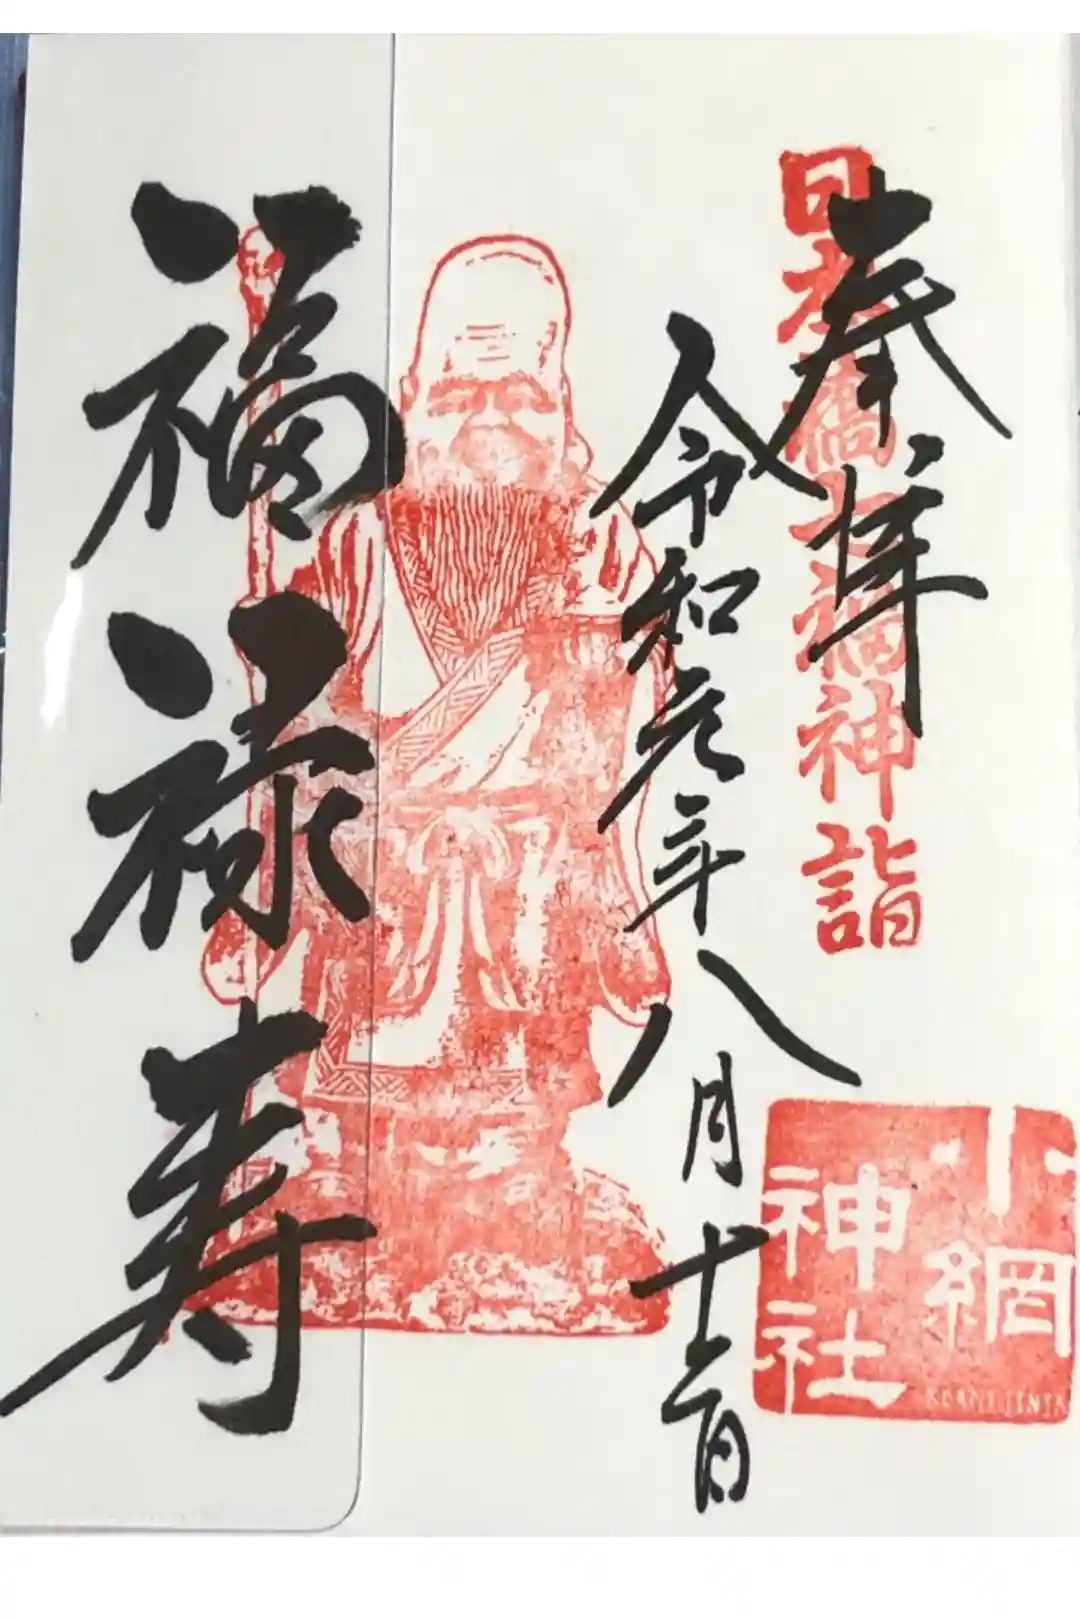 日本橋七福神詣
奉拝
令和元年八月十二日
福禄寿
小網
神社
KOAMI JINJA